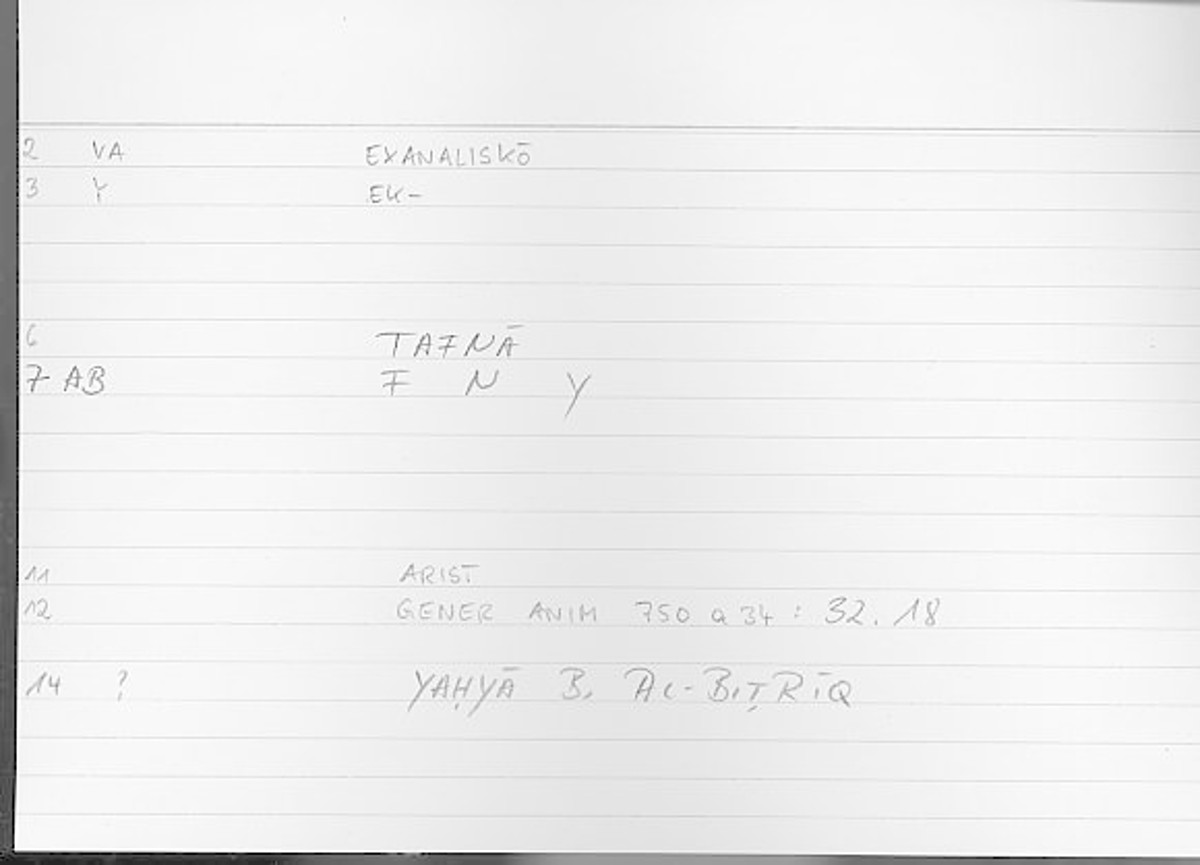 2 VA EXANALISKŌ
3 Y EK-
6 TAFNĀ
7 AB F N Y
11 ARIST
12 GENER ANIM 750 a 34 : 32.18
14 ? YAḤYĀ B. AL-BIṬRĪQ